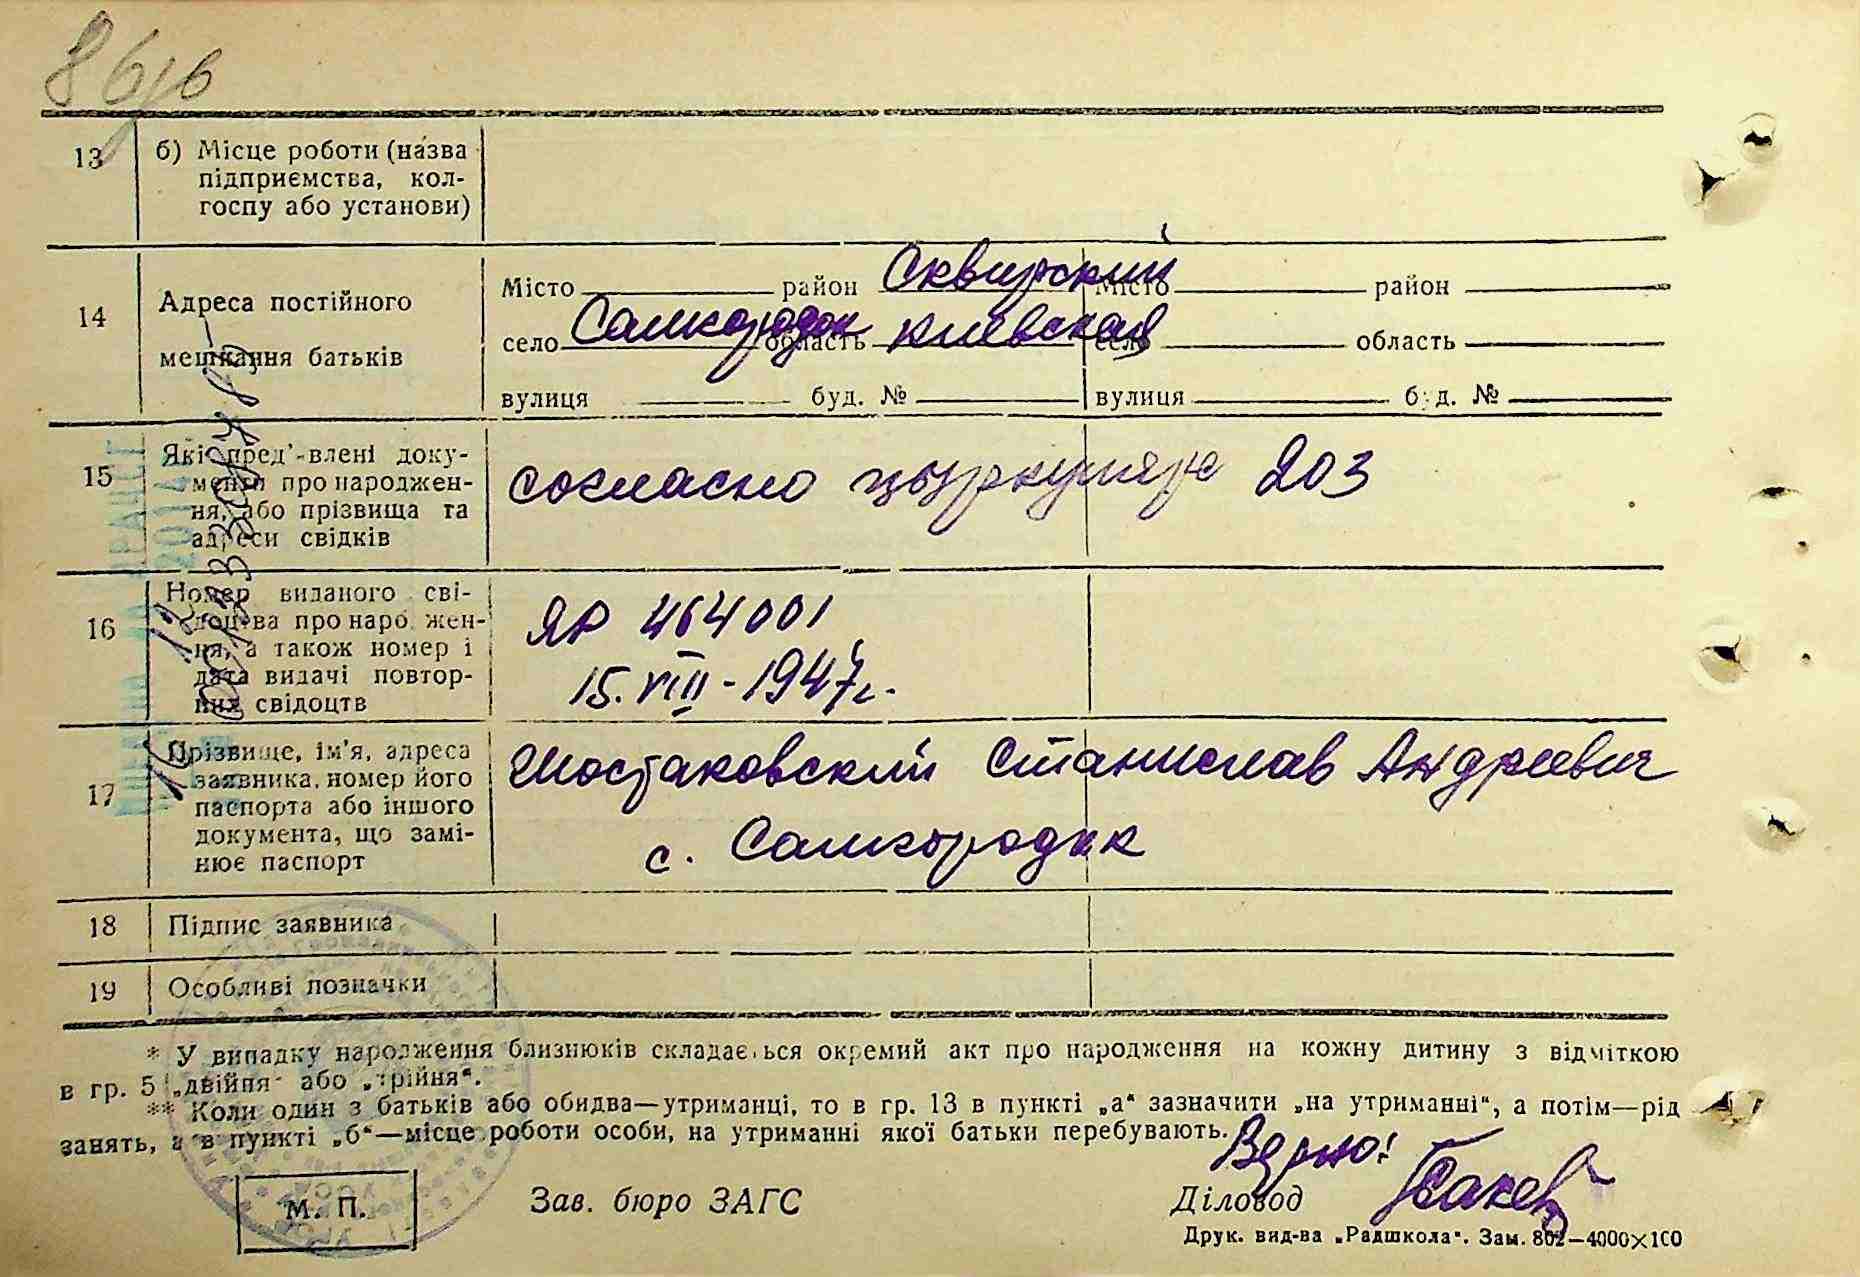 86
13 б) Місце роботи (назва
підприємства, кол-
госпу або установи)
14 Адреса постійного
мешкання батьків
Місто район Сквирский Місто район
село Самгородок область Киевская село область
вулиця буд. № вулиця буд. №
15 Які пред'-влені доку-
менти про народжен-
ня, або прізвища та
адреси свідків
согласно цыркуляр 203
16 Номер виданого сві-
доцтва про народжен-
ня, а також номер і
дата видачі повтор-
них свідоцтв
ЯР 464001
15.VIII-1947г.
17 Прізвище, ім'я, адреса
заявника, номер його
паспорта або іншого
документа, що замі-
нює паспорт
Шостаковский Станислав Андреевич
с. Самгородок
18 Підпис заявника
19 Особливі позначки
* У випадку народження близнюків складається окремий акт про народження на кожну дитину з відміткою
в гр. 5 „двійня“ або „трійня“.
** Коли один з батьків або обидва—утриманці, то в гр. 13 в пункті „а“ зазначити „на утриманні“, а потім—рід
занять, а в пункті „б“—місце роботи особи, на утриманні якої батьки перебувають.
Верно!
М. П. Зав. бюро ЗАГС Діловод
Друк. вид-ва „Радшкола“. Зам. 802—4000×100